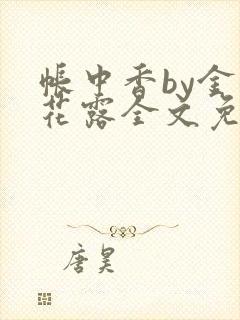 帐中香by金
花露全文免
唐昊